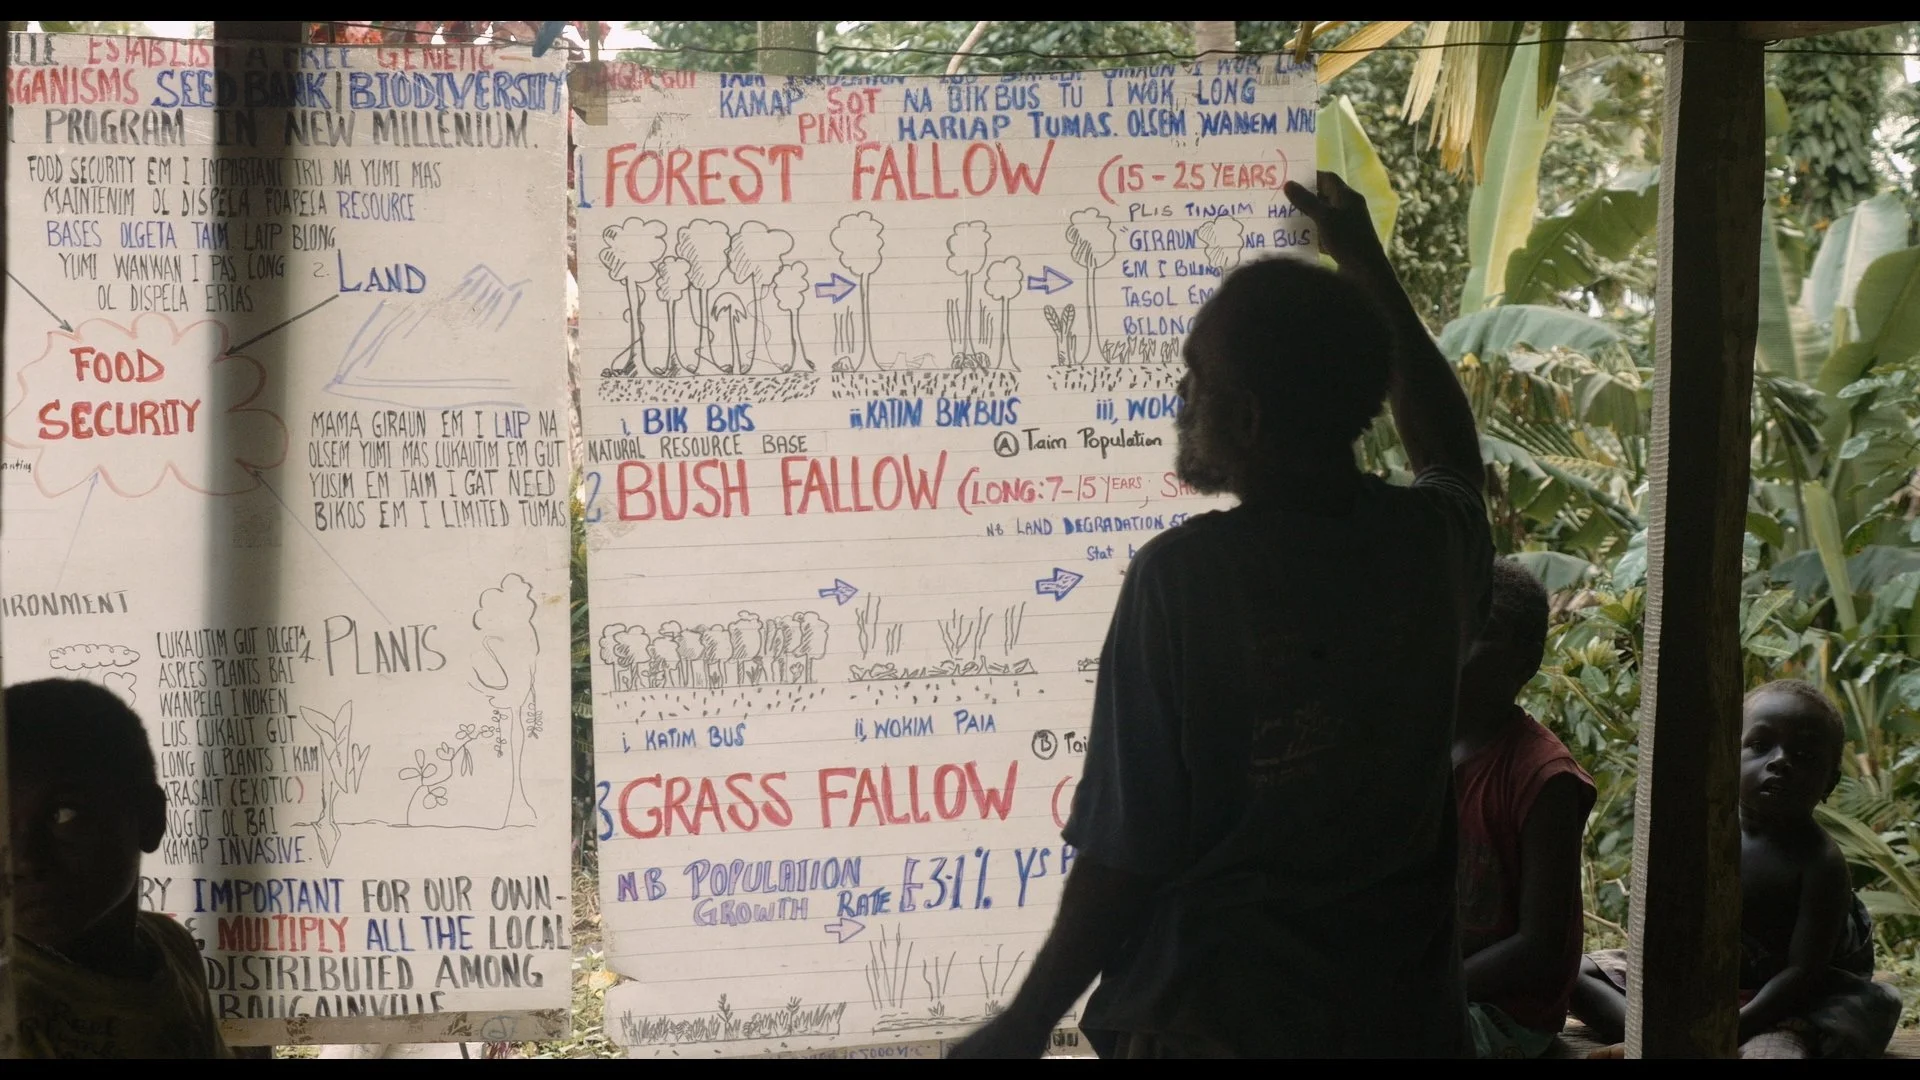 ESTABLISH A FREE GENETIC-
ORGANISMS SEED BANK/BIODIVERSITY
PROGRAM IN NEW MILLENIUM.
FOOD SECURITY EM I IMPORTANT TRU NA YUMI MAS
MAINTENIM OL DISPELA FOAPELA RESOURCE
BASES OLGETA TAIM. LAIP BLONG
YUMI WANWAN I PAS LONG
OL DISPELA ERIAS
2. LAND
FOOD
SECURITY
MAMA GIRAUN EM I LAIP NA
OLSEM YUMI MAS LUKAUTIM EM GUT
YUSIM EM TAIM I GAT NEED
BIKOS EM I LIMITED TUMAS
IRONMENT
4. PLANTS
LUKAUTIM GUT OLGETA
ASPLES PLANTS BAI
WANPELA I NOKEN
LUS. LUKAUT GUT
LONG OL PLANTS I KAM
ARASAIT (EXOTIC)
NOGUT OL BAI
KAMAP INVASIVE.
RY IMPORTANT FOR OUR OWN-
& MULTIPLY ALL THE LOCAL
DISTRIBUTED AMONG
BOUGAINVILLE
GIRAUN I WOK LONG
KAMAP SOT NA BIKBUS TU I WOK LONG
PINIS HARIAP TUMAS. OLSEM WANEM NAU
1 FOREST FALLOW (15-25 YEARS)
PLIS TINGIM HAP
"GIRAUN NA BUS
EM I BILONG
TASOL EM
BILONG
i, BIK BUS
ii, KATIM BIKBUS
iii, WOK
NATURAL RESOURCE BASE
(A) Taim Population
2 BUSH FALLOW (LONG: 7-15 YEARS; SH
NB LAND DEGRADATION ST
Stat b
i, KATIM BUS
ii, WOKIM PAIA
(B) Tai
3 GRASS FALLOW (
NB POPULATION
GROWTH RATE £3.1% YS P